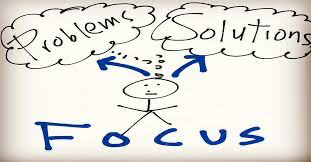 Problems
Solutions
Focus